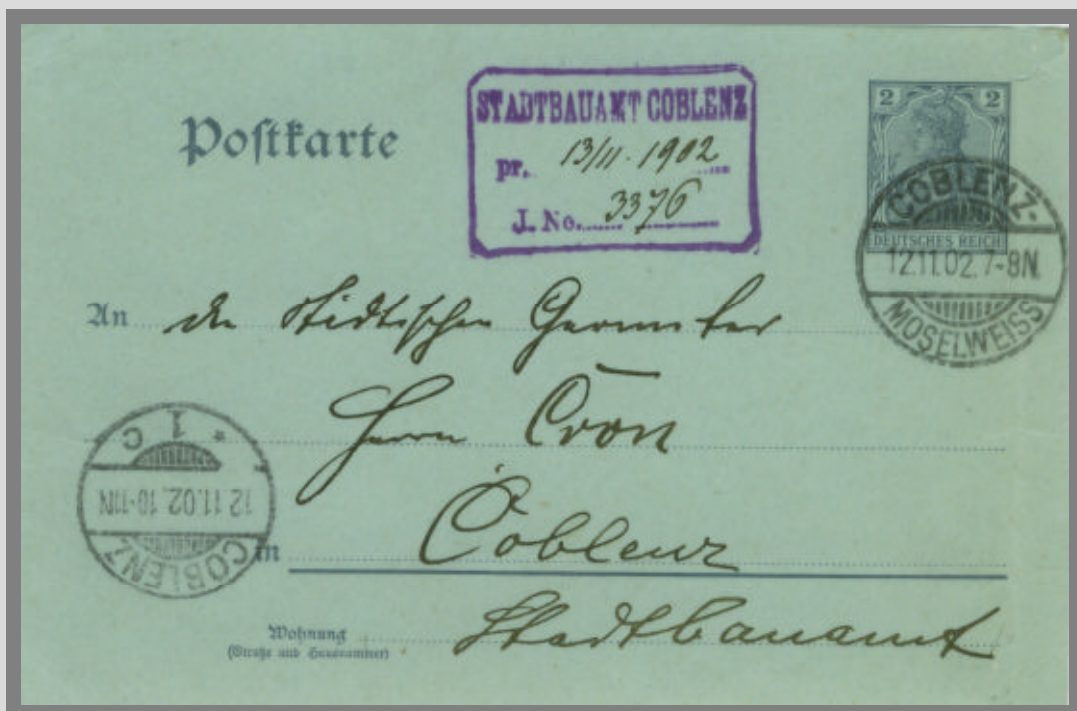 Postkarte
STADTBAUAMT COBLENZ
pr. 13/11. 1902
J. No. 3376
2 2
DEUTSCHES REICH
COBLENZ-
12.11.02.7-8N.
MOSELWEISS
An den städtischen Geometer
Herrn Cron
in Coblenz
Wohnung
(Straße und Hausnummer)
Stadtbauamt
COBLENZ
12.11.02.10-11N
* 1 C